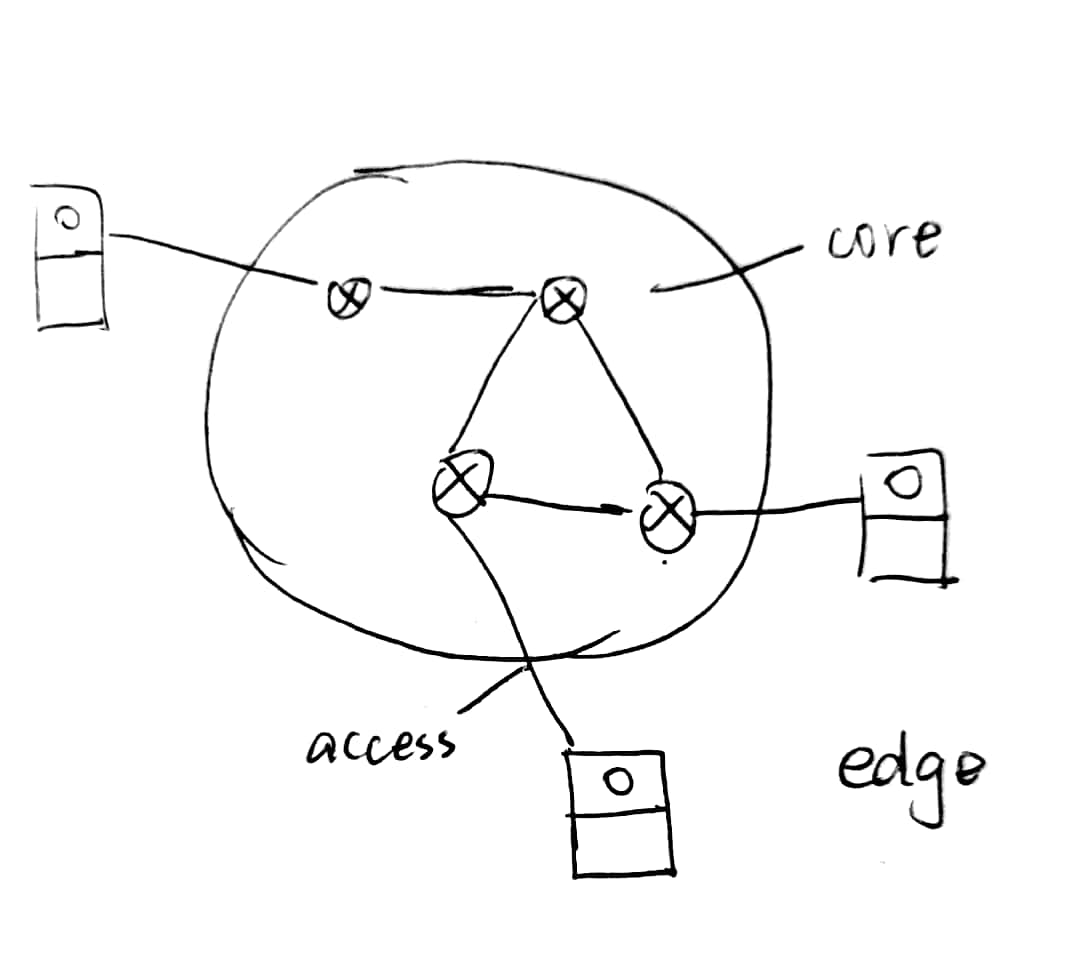 core
access
edge